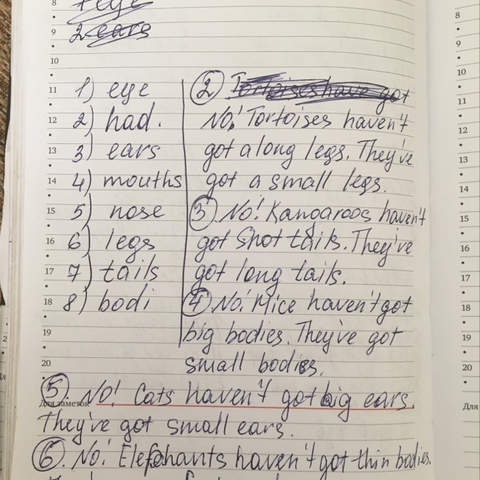 1 eye
2 ears
1) eye
2) had.
3) ears
4) mouths
5) nose
6) legs
7) tails
8) bodi
② Tortoises have got
No! Tortoises haven't
got a long legs. They've
got a small legs.
③ No! Kangaroos haven't
got shot tails. They've
got long tails.
④ No! Mice haven't got
big bodies. They've got
small bodies.
⑤. No! Cats haven't got big ears.
Для заметок
They've got small ears.
⑥. No! Elephants haven't got thin bodies.
8
9
10
11
12
13
14
15
16
17
18
19
20
8
9
10
11
12
13
14
15
16
17
18
19
20
Для